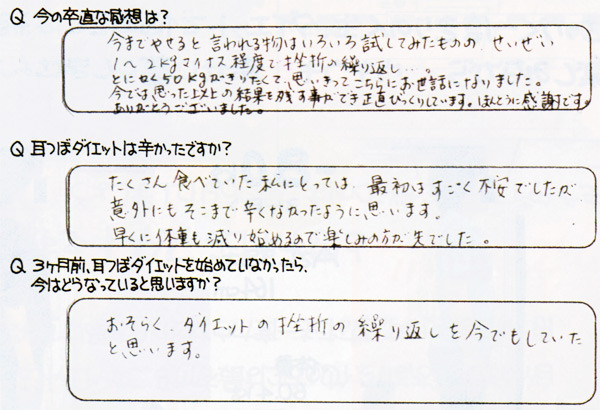 Q 今の率直な感想は?
今までやせると言われる物はいろいろ試してみたものの、せいぜい
1〜2kgマイナス程度で挫折の繰り返し…。
とにかく50kgがきりたくて、思いきってこちらにお世話になりました。
今では思った以上の結果を残す事ができ正直びっくりしています。ほんとうに感謝です。
ありがとうございました。
Q 耳つぼダイエットは辛かったですか?
たくさん食べていた私にとっては、最初はすごく不安でしたが
意外にもそこまで辛くなかったように思います。
早くに体重も減り始めるので楽しみの方が先でした。
Q 3ヶ月前、耳つぼダイエットを始めていなかったら、
今はどうなっていると思いますか?
おそらく、ダイエットの挫折の繰り返しを今でもしていた
と思います。